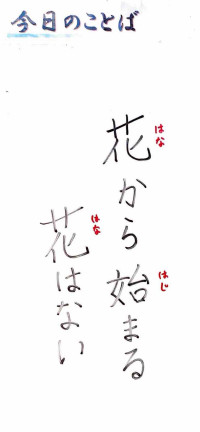 今日のことば
花から始まる
はな
はじ
花はない
はな